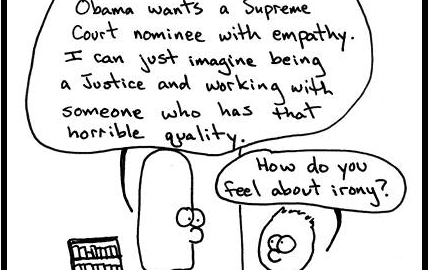 Obama wants a Supreme
Court nominee with empathy.
I can just imagine being
a Justice and working with
someone who has that
horrible quality.
How do you
feel about irony?